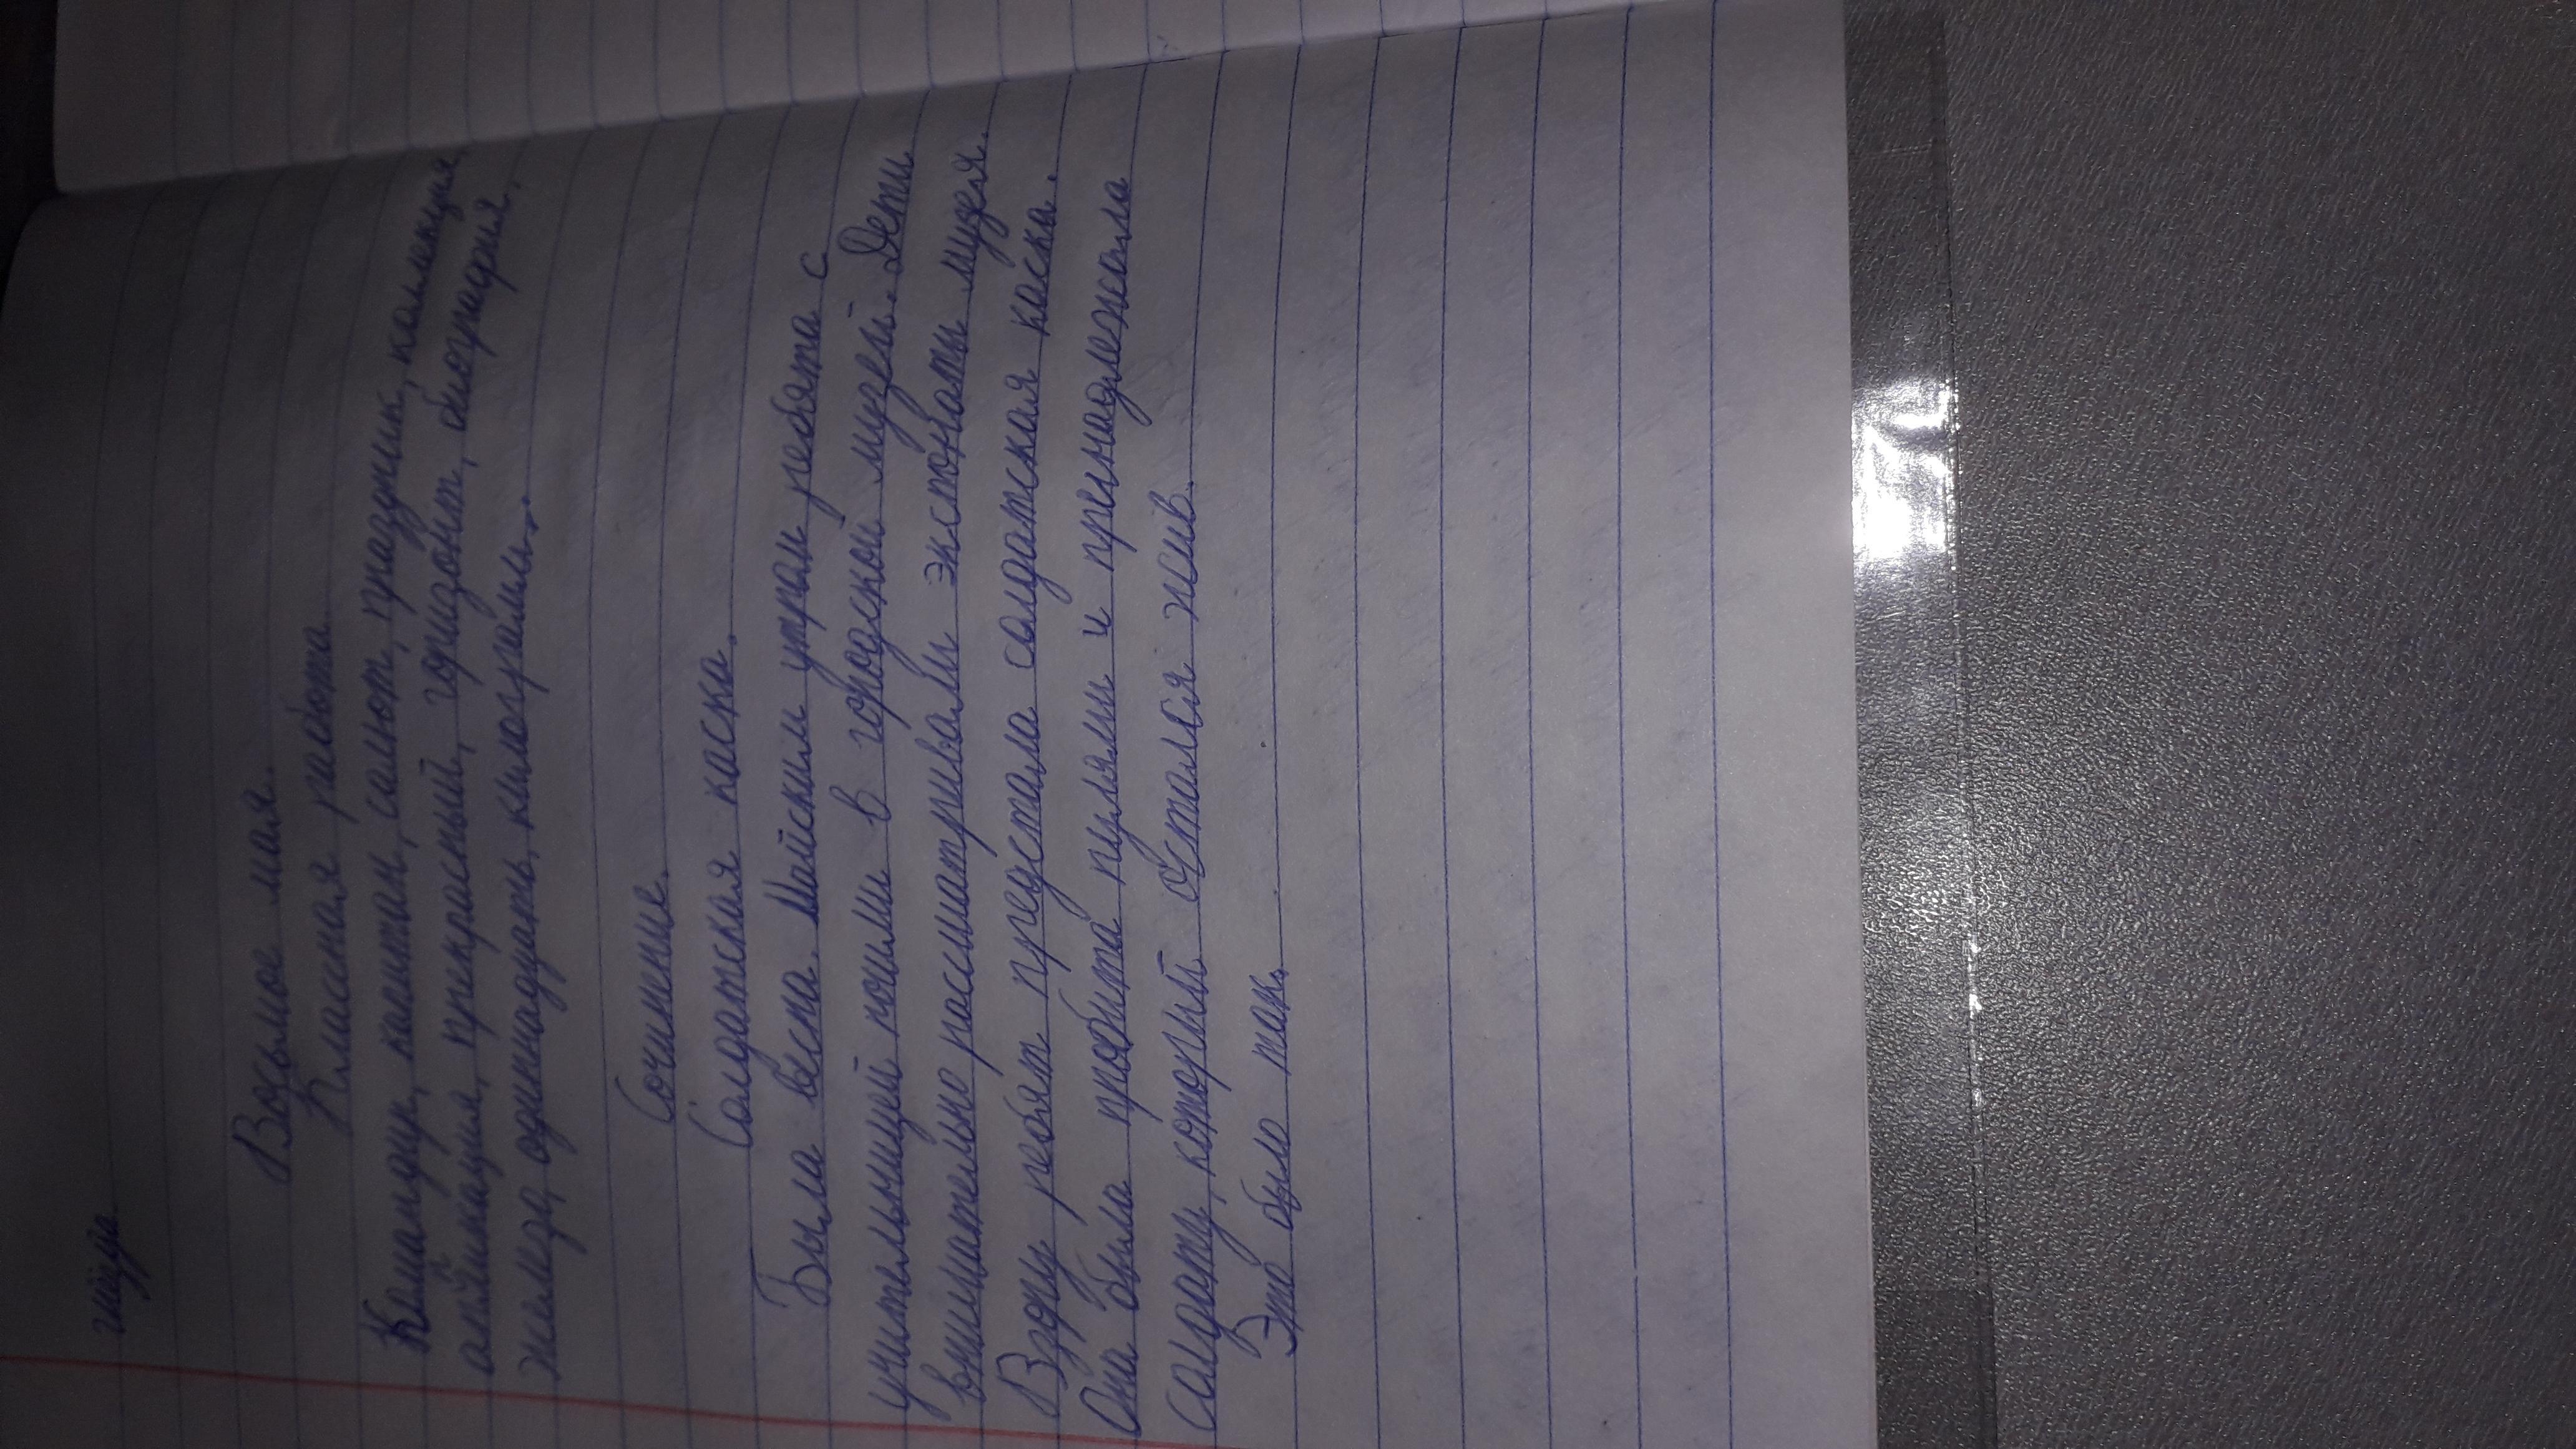 Восьмое мая.
Классная работа
Командир, капитан, салют, праздник, коллекция,
аппликация, прекрасный, горизонт, биография.
железо, одиннадцать, килограмм.
Сочинение.
Солдатская каска.
Была весна. Майским утром ребята с
учительницей пошли в городской музей. Дети
внимательно рассматривали экспонаты музея.
Взору ребят предстала солдатская каска.
Она была пробита пулями и пренадлежала
солдату, который остался жив.
Это было так.